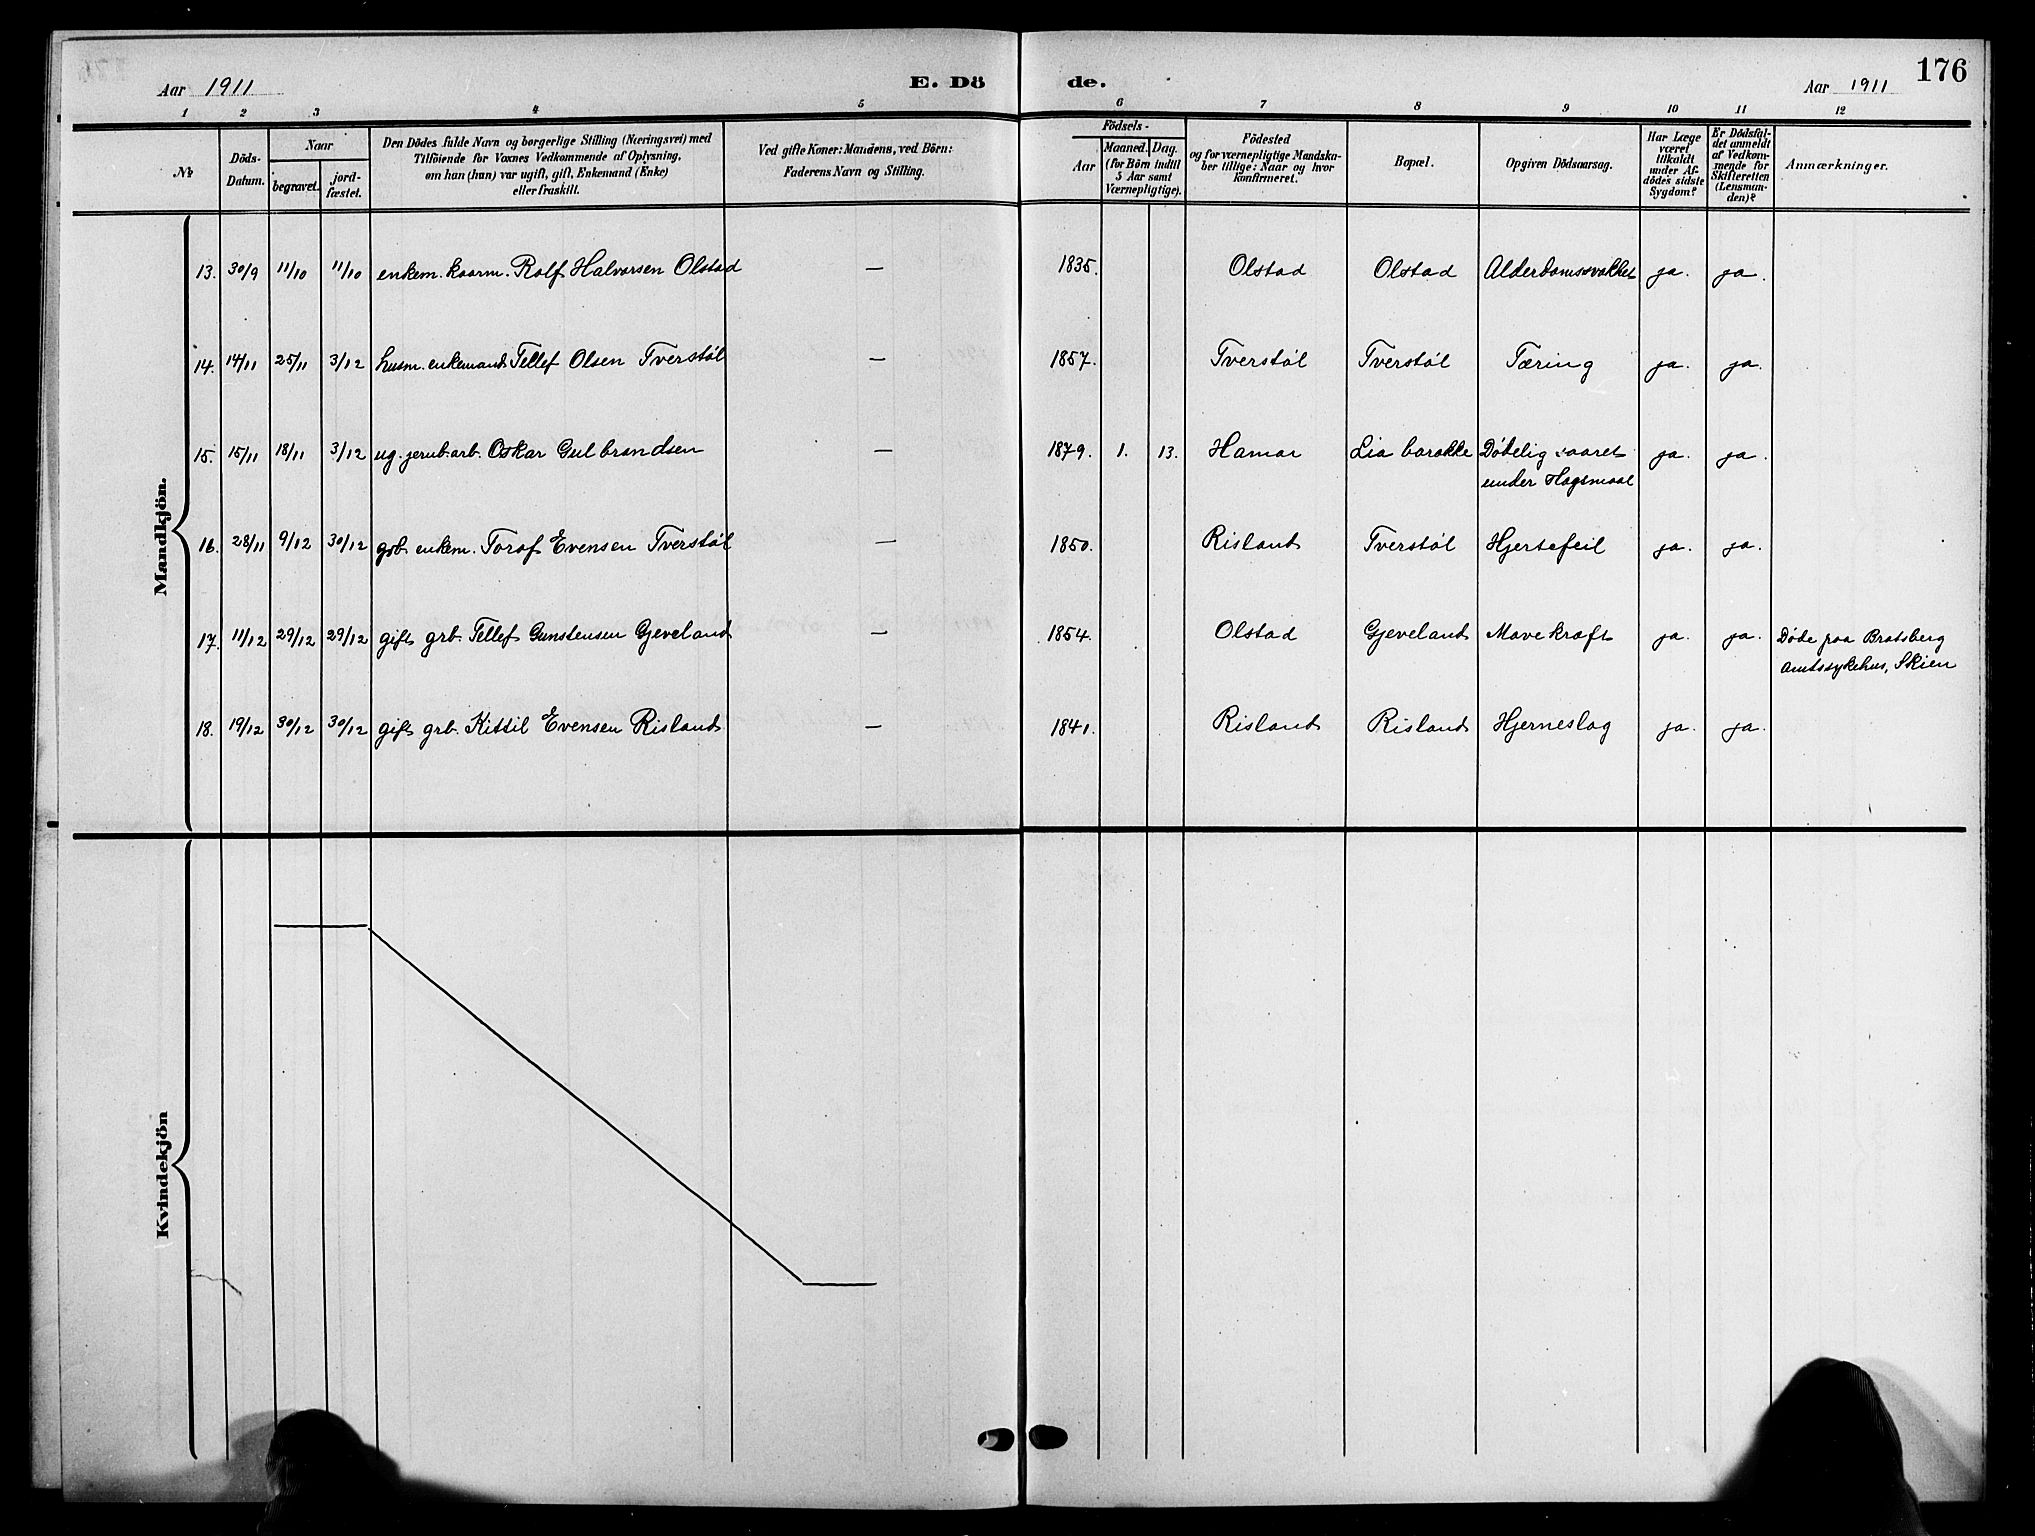 176
Aar 1911 E. Dö de. Aar 1911
1 2 3 4 5 6 7 8 9 10 11 12
№
Döds-
Datum.
Naar
begravet.
jord-
fæstet.
Den Dödes fulde Navn og borgerlige Stilling (Næringsvei) med
Tilföiende for Voxnes Vedkommende af Oplysning,
om han (hun) var ugift, gift, Enkemand (Enke)
eller fraskilt.
Ved gifte Koner: Mandens, ved Börn:
Faderens Navn og Stilling.
Födsels-
Aar
Maaned. Dag.
(for Börn indtil
5 Aar samt
Værnepligtige).
Födested
og for værnepligtige Mandska-
ber tillige: Naar og hvor
konfirmeret.
Bopæl.
Opgiven Dödsaarsag.
Har Læge
været
tilkaldt
under Af-
dödes sidste
Sygdom?
Er Dödsfal-
det anmeldt
af Vedkom-
mende for
Skifteretten
(Lensman-
den)?
Anmærkninger.
Mandkjön.
13. 30/9 11/10 11/10 enkem. kaarm. Rolf Halvorsen Olstad — 1835. Olstad Olstad Alderdomssvakhet ja. ja.
14. 14/11 25/11 3/12 husm. enkemand Tellef Olsen Tverstøl — 1857. Tverstøl Tverstøl Tæring ja. ja.
15. 15/11 18/11 3/12 ug. jernb. arb. Oskar Gulbrandsen — 1879. 1. 13. Hamar Lia barakke Dødelig saaret ja. ja.
under Slagsmaal
16. 28/11 9/12 30/12 grb. enkem. Toraf Evensen Tverstøl — 1850. Risland Tverstøl Hjertefeil ja. ja.
17. 11/12 29/12 29/12 gift grb. Tellef Gunstensen Gjeveland — 1854. Olstad Gjeveland Mavekræft ja. ja. Døde paa Bratsberg
Amtssykehus, Skien
18. 19/12 30/12 30/12 gift grb. Kittil Evensen Risland — 1841. Risland Risland Hjerneslag ja. ja.
Kvindekjön